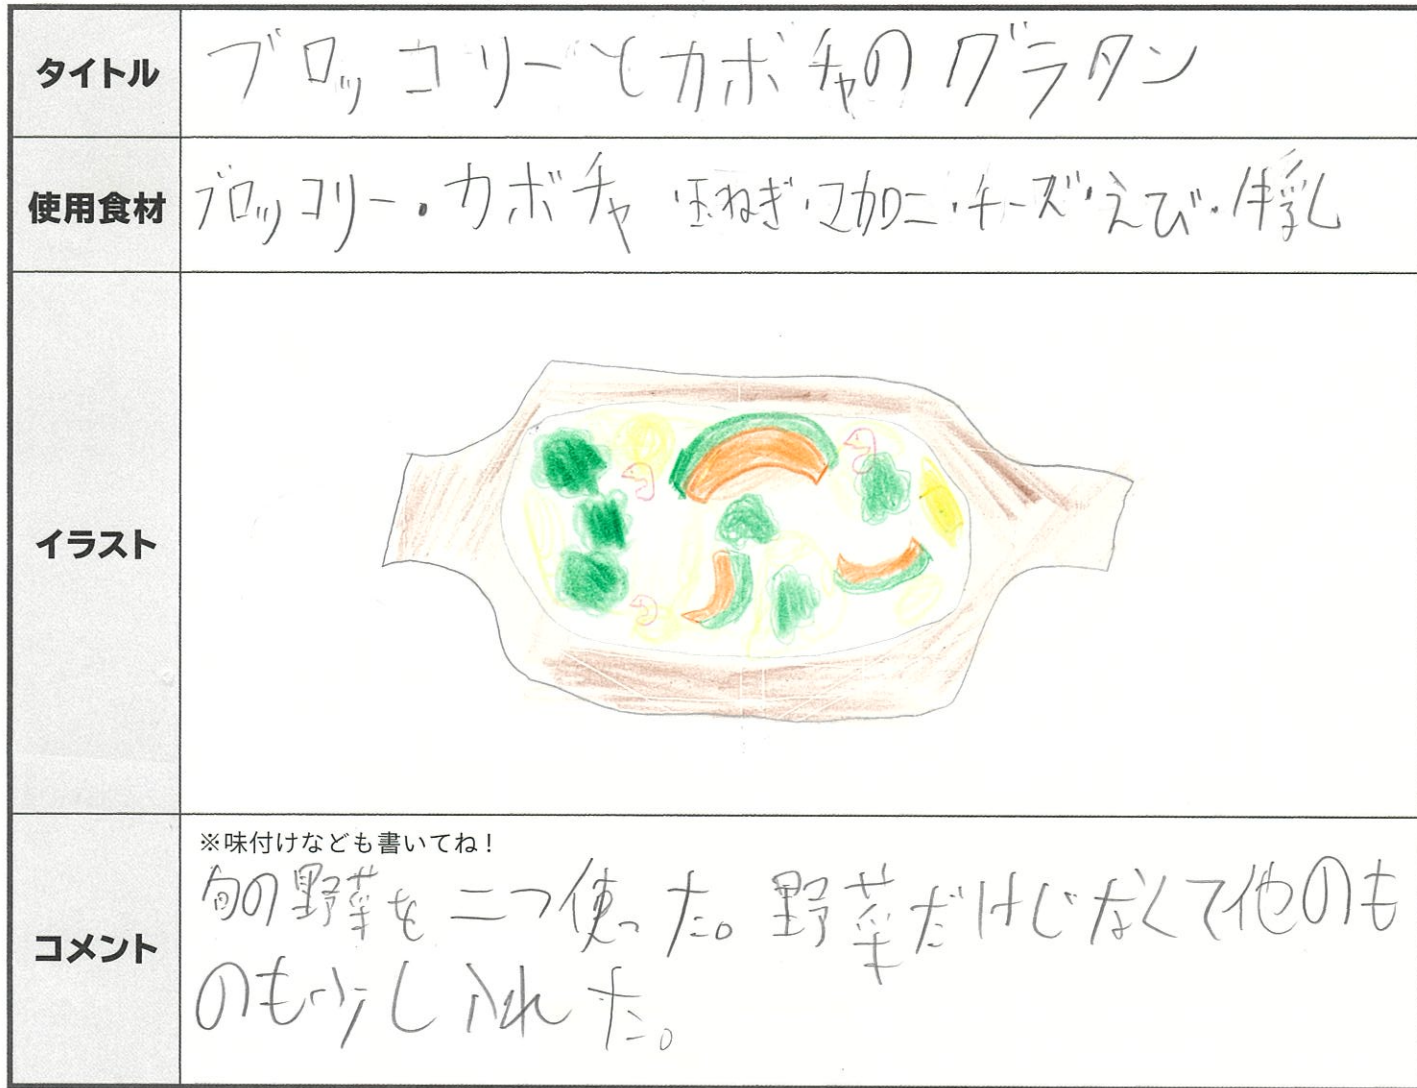 タイトル
ブロッコリーとカボチャのグラタン
使用食材
ブロッコリー・カボチャ 玉ねぎ・マカロニ・チーズ・えび・牛乳
イラスト
コメント
※味付けなども書いてね!
旬の野菜を二つ使った。野菜だけじなくて他のも
のも少し入れた。